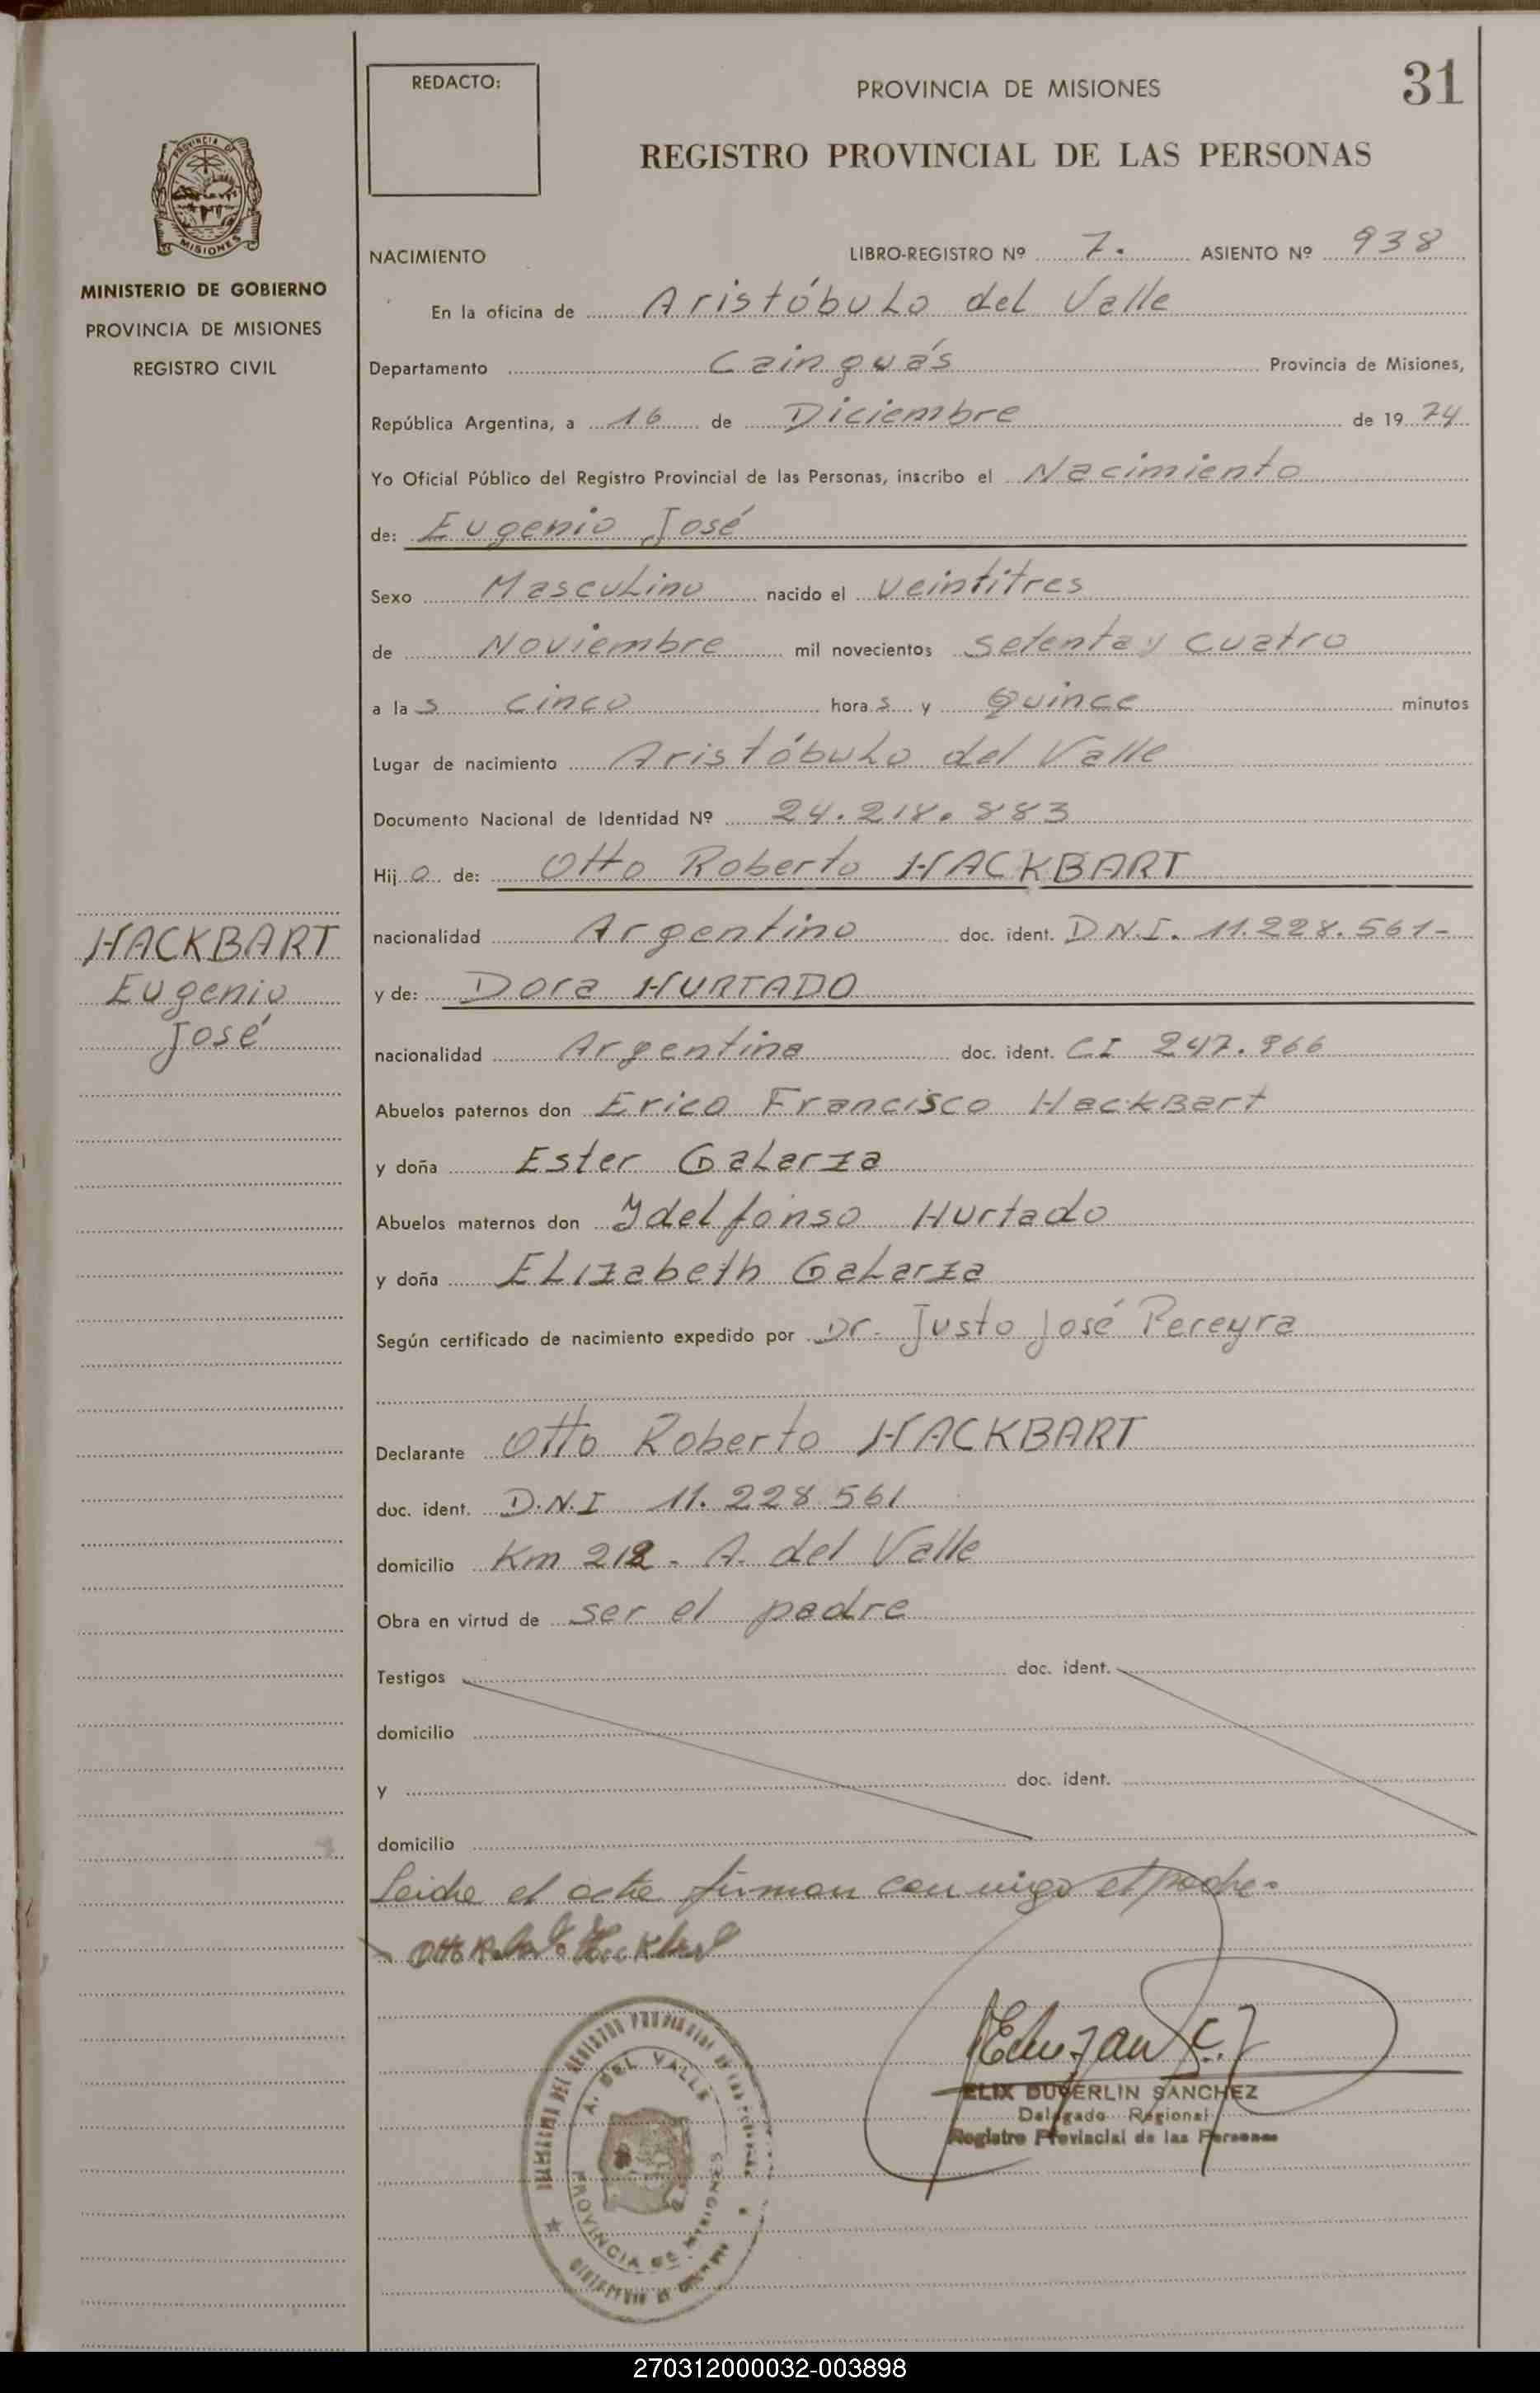 31
REDACTO:
PROVINCIA DE MISIONES
REGISTRO PROVINCIAL DE LAS PERSONAS
PROVINCIA DE
MISIONES
MINISTERIO DE GOBIERNO
PROVINCIA DE MISIONES
REGISTRO CIVIL
NACIMIENTO LIBRO-REGISTRO Nº 7. ASIENTO Nº 938
En la oficina de Aristóbulo del Valle
Departamento Cainguás Provincia de Misiones,
República Argentina, a 16 de Diciembre de 19 74
Yo Oficial Público del Registro Provincial de las Personas, inscribo el Nacimiento
de: Eugenio José
Sexo Masculino nacido el veintitres
de Noviembre mil novecientos setenta y cuatro
a las cinco horas y Quince minutos
Lugar de nacimiento Aristóbulo del Valle
Documento Nacional de Identidad Nº 24.218.883
Hijo de: Otto Roberto HACKBART
HACKBART
Eugenio
José
nacionalidad Argentino doc. ident. D.N.I. 11.228.561-
y de: Dora HURTADO
nacionalidad Argentina doc. ident. CI 247.966
Abuelos paternos don Erico Francisco HackBart
y doña Ester Galarza
Abuelos maternos don Ydelfonso Hurtado
y doña ELizabeth Galarza
Según certificado de nacimiento expedido por Dr. Justo José Pereyra
Declarante Otto Roberto HACKBART
doc. ident. D.N.I 11.228.561
domicilio Km 212 - A. del Valle
Obra en virtud de ser el padre
Testigos doc. ident.
domicilio
y doc. ident.
domicilio
Leida el acta firman conmigo el padre.
Otto Roberto Hackbart
A. DEL VALLE
PROVINCIA DE MISIONES
ELIX DUVERLIN SANCHEZ
Delegado Regional
Registro Provincial de las Personas
270312000032-003898